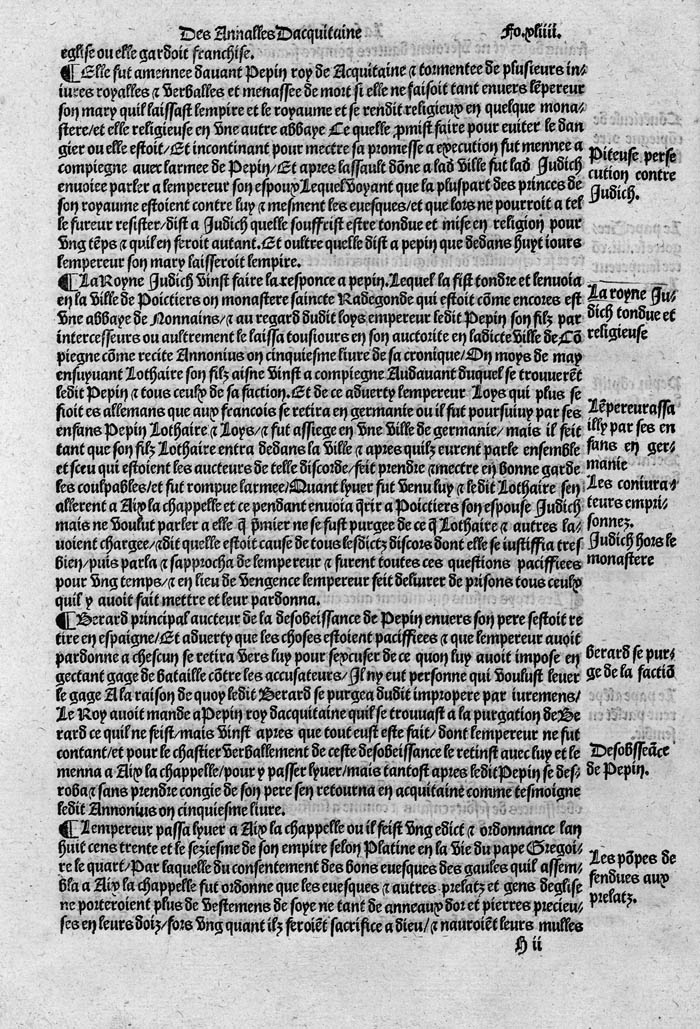 Des Annalles Dacquitaine Fo.xliiii.
eglise ou elle gardoit franchise.
¶ Elle fut amennee davant Pepin roy de Acquitaine ⁊ tormentee de plusieurs in⸗
iures royalles ⁊ verballes et menassee de mort si elle ne faisoit tant enuers lēpereur
son mary quil laissast lempire et le royaume et se rendit religieux en quelque mona⸗
stere/et elle religieuse en vne autre abbaye Ce quelle p̄mist faire pour euiter le dan
gier ou elle estoit/Et incontinant pour mectre sa promesse a execution fut mennee a
compiegne auec larmee de Pepin/Et apres lassault dōne a lad ville fut lad Judich
enuoiee parler a lempereur son espoux Lequel voyant que la pluspart des princes de
son royaume estoient contre luy ⁊ mesment les euesques/et que lors ne pourroit a tel
le fureur resister/dist a Judich quelle souffrist estre tondue et mise en religion pour
vng tēps ⁊ quil en feroit autant. Et oultre quelle dist a pepin que dedans huyt iours
lempereur son mary laisseroit lempire.
Piteuse perse
cution contre
Judich.
¶ La Royne Judich vinst faire la responce a pepin. Lequel la fist tondre et lenuoia
en la ville de Poictiers on monastere saincte Radegonde qui estoit cōme encores est
vne abbaye de Nonnains/⁊ au regard dudit loys empereur ledit Pepin son filz par
intercesseurs ou aultrement le laissa tousiours en son auctorite en ladicte ville de Cō
piegne cōme recite Annonius on cinquiesme liure de sa cronique/On moys de may
ensuyuant Lothaire son filz aisne vinst a compiegne Audauant duquel se trouuerēt
ledit Pepin ⁊ tous ceulx de sa faction. Et de ce aduerty lempereur Loys qui plus se
fioit es allemans que aux francois se retira en germanie ou il fut poursuiuy par ses
enfans Pepin Lothaire ⁊ Loys/⁊ fut assiege en vne ville de germanie/mais il feit
tant que son filz Lothaire entra dedans la ville ⁊ apres quilz eurent parle ensemble
et sceu qui estoient les aucteurs de telle discorde/feit prendre ⁊ mectre en bonne garde
les coulpables/et fut rompue larmee/Quant lyuer fut venu luy ⁊ ledit Lothaire sen
allerent a Aix la chappelle et ce pendant enuoia q̄rir a Poictiers son espouse Judich
mais ne voulut parler a elle q̄ p̄mier ne se fust purgee de ce q̄ Lothaire ⁊ autres la⸗
uoient chargee/⁊dit quelle estoit cause de tous lesdictz discors dont elle se iustiffia tres
bien/puis parla ⁊ sapprocha de lempereur ⁊ furent toutes ces questions paciffiees
pour vng temps/⁊ en lieu de vengence lempereur feit deliurer de prisons tous ceulx
quil y auoit fait mettre et leur pardonna.
La royne Ju⸗
dich tondue et
religieuse
Lēpereur assa
illy par ses en
fans en ger⸗
manie
Les coniura⸗
teurs empri⸗
sonnez.
Judich hors le
monastere
¶ Berard principal aucteur de la desobeissance de Pepin enuers son pere sestoit re
tire en espaigne/Et aduerty que les choses estoient paciffiees ⁊ que lempereur auoit
pardonne a chescun se retira vers luy pour sexcuser de ce quon luy auoit impose en
gectant gage de bataille cōtre les accusateurs/Il ny eut personne qui voulust leuer
le gage A la raison de quoy ledit Berard se purgea dudit impropere par iuremens/
Le Roy auoit mande a Pepin roy dacquitaine quil se trouuast a la purgation de Be
rard ce quil ne feist/mais vinst apres que tout eust este fait/dont lempereur ne fut
contant/et pour le chastier verballement de ceste desobeissance le retinst auec luy et le
menna a Aix la chappelle/pour y passer lyuer/mais tantost apres ledit Pepin se des⸗
roba ⁊ sans prendre congie de son pere sen retourna en acquitaine comme tesmoigne
ledit Annonius on cinquiesme liure.
berard se pur⸗
ge de la factiō
Desobsseāce
de Pepin.
¶ Lempereur passa lyuer a Aix la chappelle ou il feist vng edict ⁊ ordonnance lan
huit cens trente et le seziesme de son empire selon Platine en la vie du pape Gregoi⸗
re le quart/Par laquelle du consentement des bons euesques des gaules quil assem⸗
bla a Aix la chappelle fut ordonne que les euesques ⁊ autres prelatz et gens deglise
ne porteroient plus de vestemens de soye ne tant de anneaux dor et pierres precieu⸗
ses en leurs doiz/fors vng quant ilz feroiēt sacrifice a dieu/⁊ nauroiēt leurs mulles
Les pōpes de
fendues aux
prelatz.
H ii